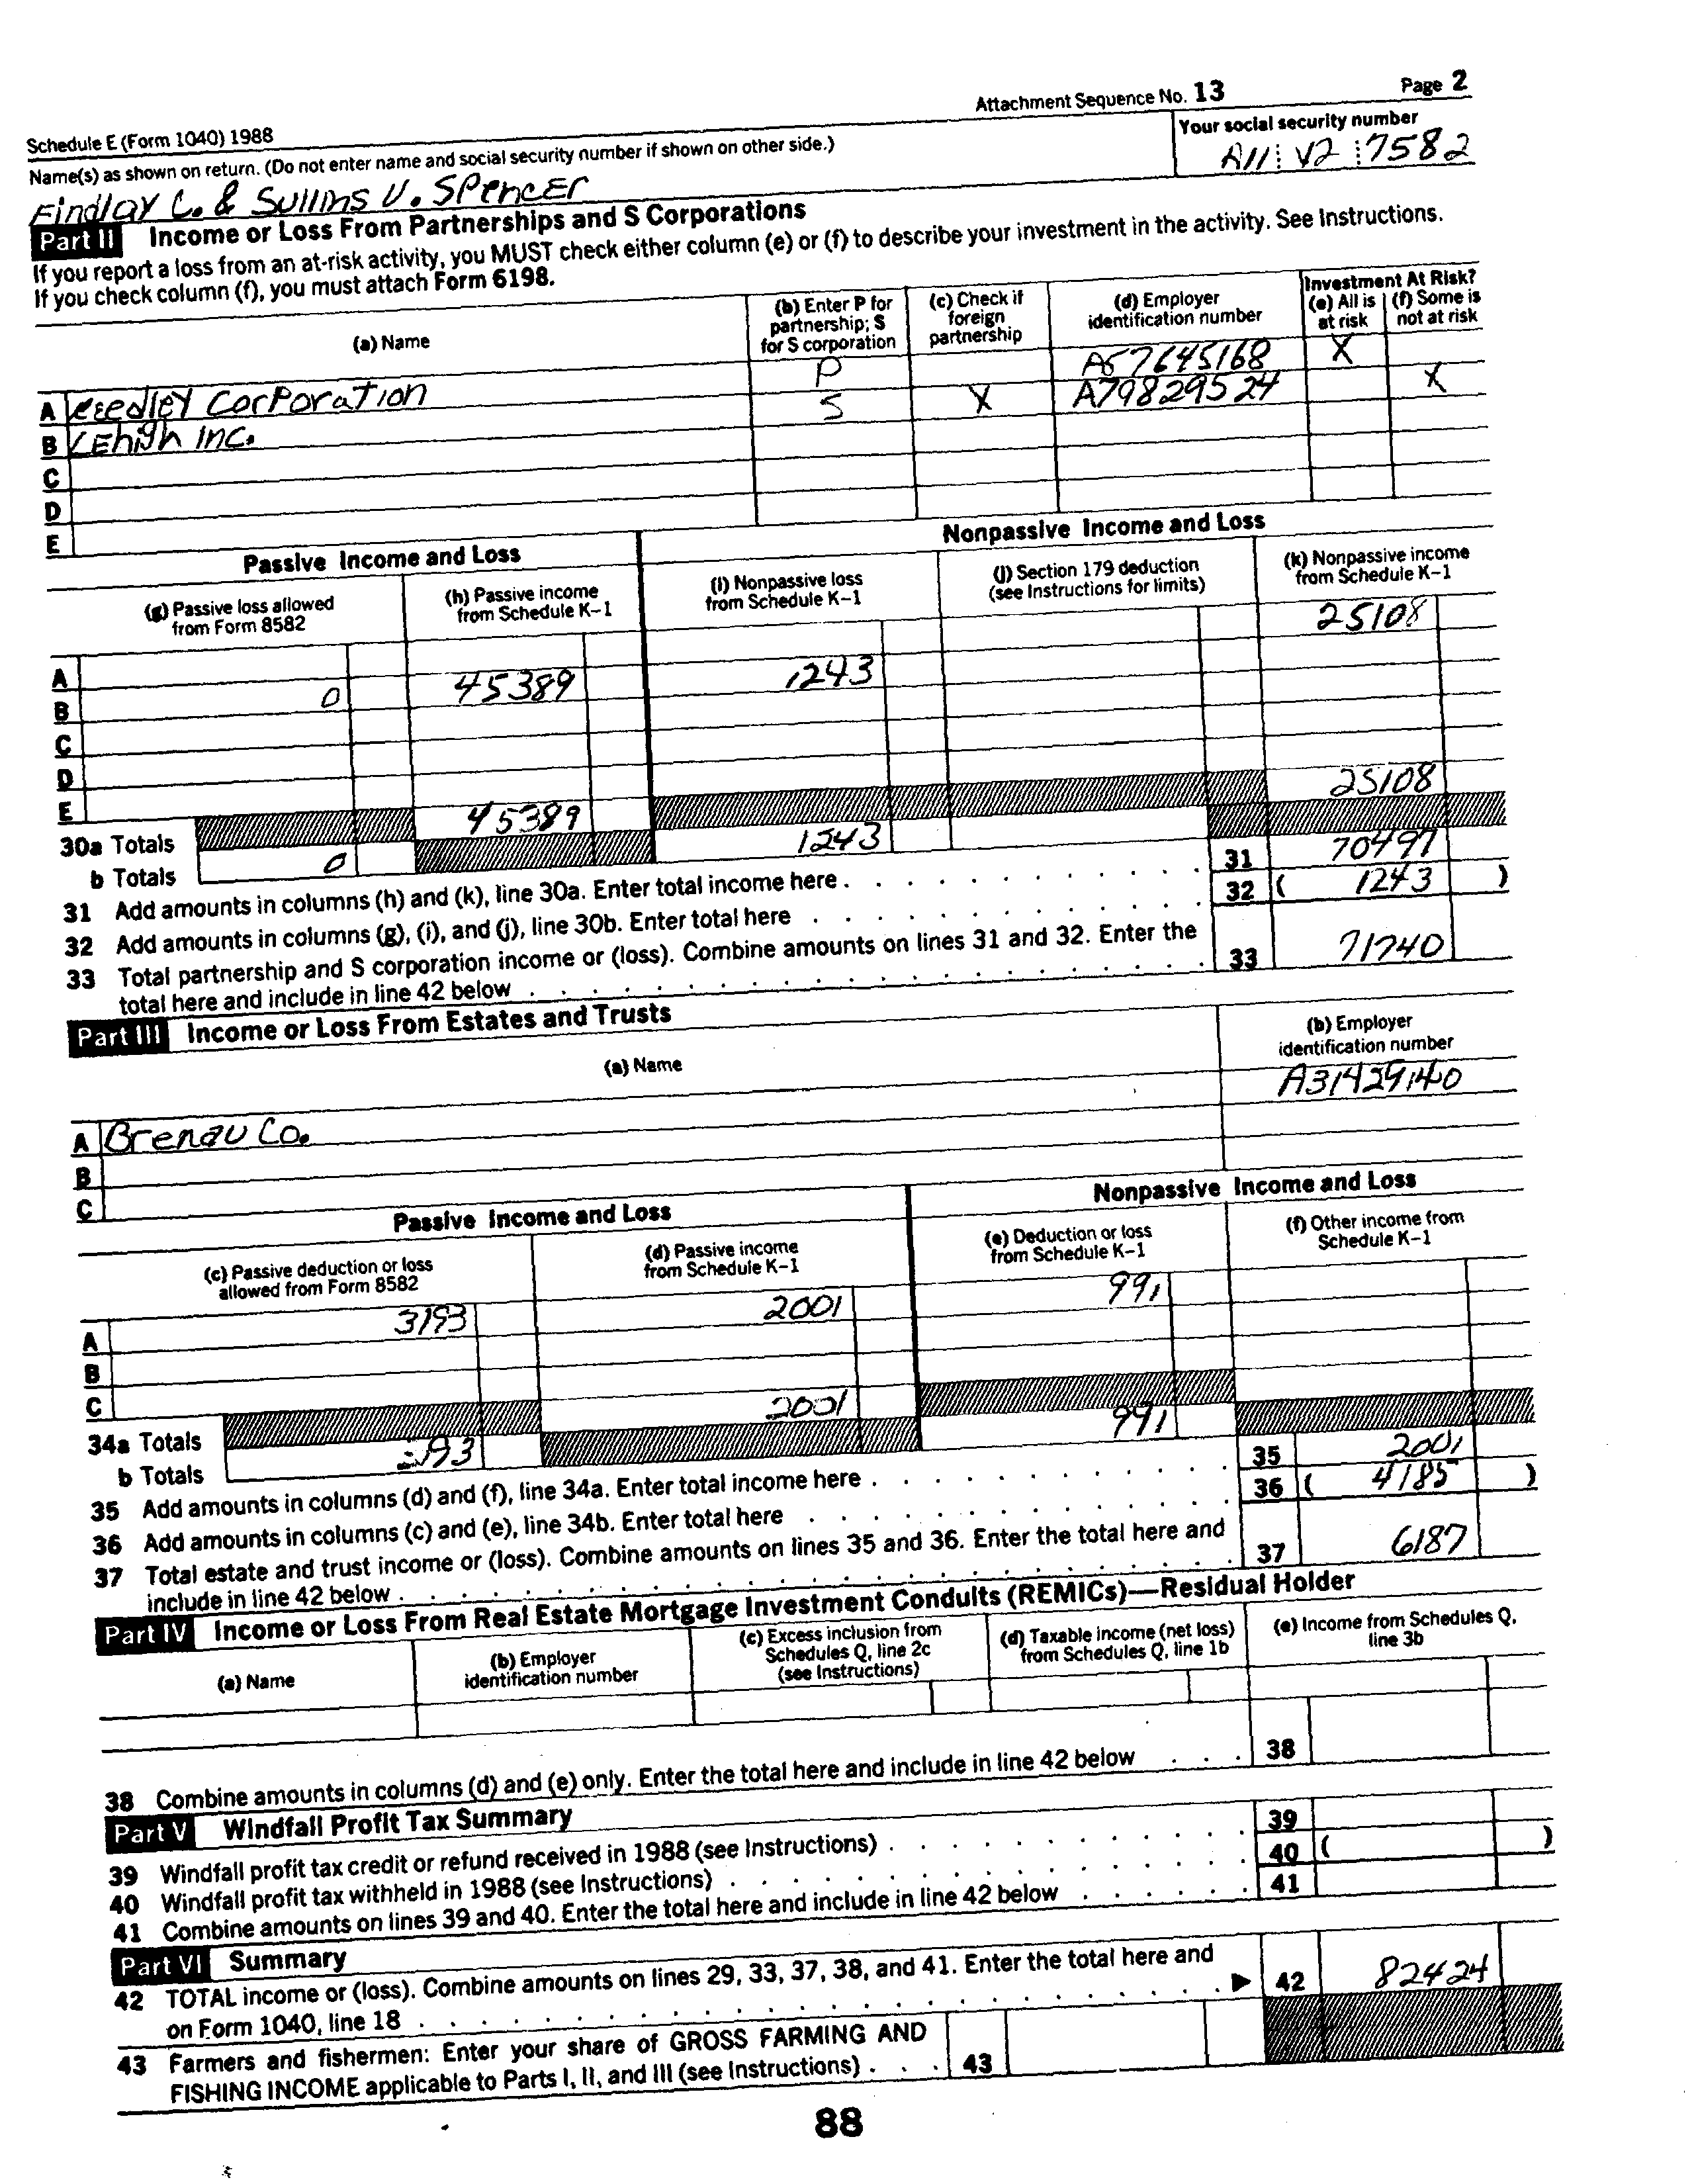 Schedule E (Form 1040) 1988 Attachment Sequence No. 13 Page 2
Name(s) as shown on return. (Do not enter name and social security number if shown on other side.) Your social security number
Findlay C. & Sullins V. Spencer A11 V2 7582
Part II Income or Loss From Partnerships and S Corporations
If you report a loss from an at-risk activity, you MUST check either column (e) or (f) to describe your investment in the activity. See Instructions.
If you check column (f), you must attach Form 6198.
(a) Name (b) Enter P for partnership; S for S corporation (c) Check if foreign partnership (d) Employer identification number Investment At Risk? (e) All is at risk (f) Some is not at risk
A Reedley Corporation P A57645168 X
B Lehigh Inc. S X A79829524 X
C
D
E
Passive Income and Loss Nonpassive Income and Loss
(g) Passive loss allowed from Form 8582 (h) Passive income from Schedule K-1 (i) Nonpassive loss from Schedule K-1 (j) Section 179 deduction (see Instructions for limits) (k) Nonpassive income from Schedule K-1
A 25108
B 0 45389 1243
C
D
E
30a Totals 45389 25108
b Totals 0 1243
31 Add amounts in columns (h) and (k), line 30a. Enter total income here 31 70497
32 Add amounts in columns (g), (i), and (j), line 30b. Enter total here 32 ( 1243 )
33 Total partnership and S corporation income or (loss). Combine amounts on lines 31 and 32. Enter the
total here and include in line 42 below 33 71740
Part III Income or Loss From Estates and Trusts
(a) Name (b) Employer identification number
A Brenau Co. A31429140
B
C
Passive Income and Loss Nonpassive Income and Loss
(c) Passive deduction or loss allowed from Form 8582 (d) Passive income from Schedule K-1 (e) Deduction or loss from Schedule K-1 (f) Other income from Schedule K-1
A 3193 2001 991
B
C
34a Totals 2001
b Totals 991
35 Add amounts in columns (d) and (f), line 34a. Enter total income here 35 2001
36 Add amounts in columns (c) and (e), line 34b. Enter total here 36 ( 4185 )
37 Total estate and trust income or (loss). Combine amounts on lines 35 and 36. Enter the total here and
include in line 42 below 37 6187
Part IV Income or Loss From Real Estate Mortgage Investment Conduits (REMICs)—Residual Holder
(a) Name (b) Employer identification number (c) Excess inclusion from Schedules Q, line 2c (see Instructions) (d) Taxable income (net loss) from Schedules Q, line 1b (e) Income from Schedules Q, line 3b
38 Combine amounts in columns (d) and (e) only. Enter the total here and include in line 42 below 38
Part V Windfall Profit Tax Summary
39 Windfall profit tax credit or refund received in 1988 (see Instructions) 39
40 Windfall profit tax withheld in 1988 (see Instructions) 40 ( )
41 Combine amounts on lines 39 and 40. Enter the total here and include in line 42 below 41
Part VI Summary
42 TOTAL income or (loss). Combine amounts on lines 29, 33, 37, 38, and 41. Enter the total here and
on Form 1040, line 18 ▶ 42 82424
43 Farmers and fishermen: Enter your share of GROSS FARMING AND
FISHING INCOME applicable to Parts I, II, and III (see Instructions) 43
88